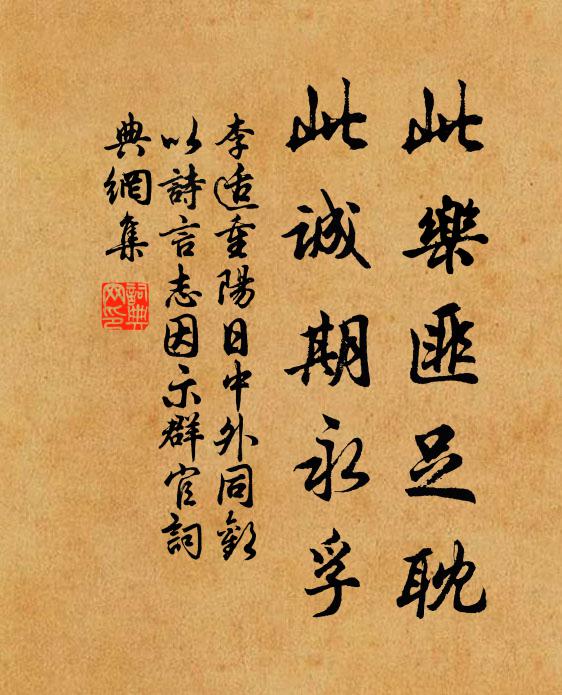 此樂匪足耽
此誠期永孚
李适重陽日中外同歡
以詩言志因示群官詞
典網集
詞典
网印